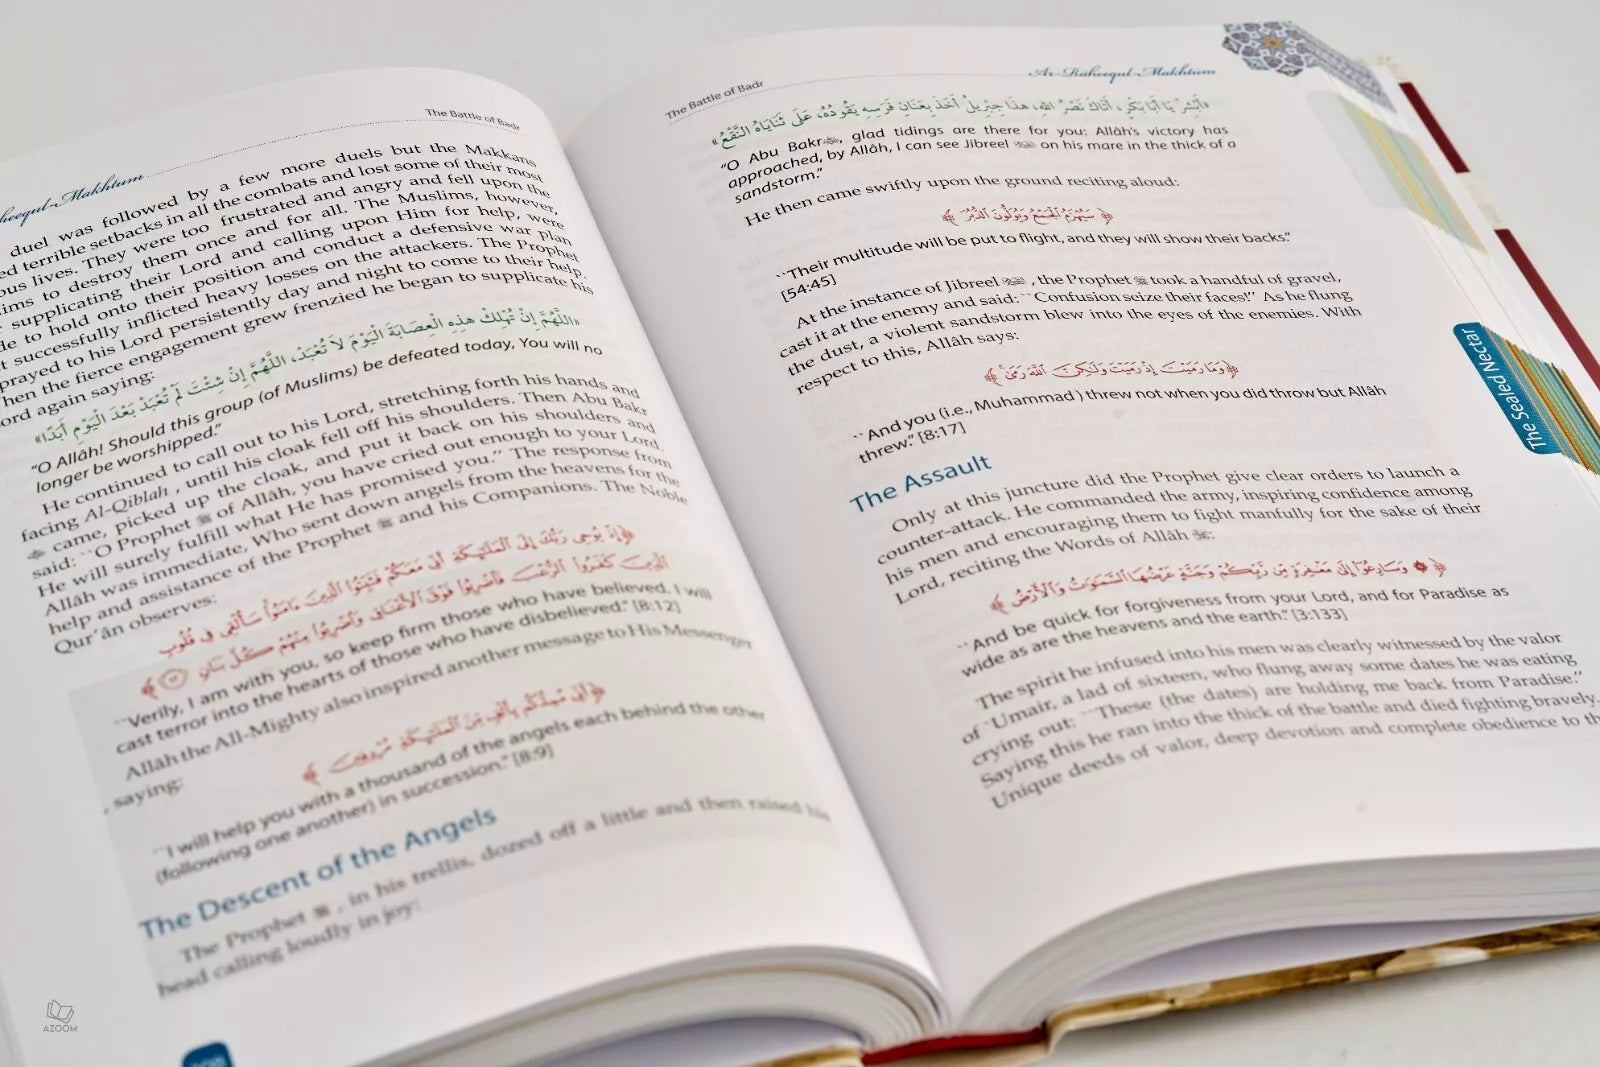 The Battle of Badr
heequl-Makhtum
duel was followed by a few more duels but the Makkans
ed terrible setbacks in all the combats and lost some of their most
ous lives. They were too frustrated and angry and fell upon the
ims to destroy them once and for all. The Muslims, however,
supplicating their Lord and calling upon Him for help, were
de to hold onto their position and conduct a defensive war plan
t successfully inflicted heavy losses on the attackers. The Prophet
prayed to his Lord persistently day and night to come to their help.
hen the fierce engagement grew frenzied he began to supplicate his
ord again saying:
«اللَّهُمَّ إِنْ تُهْلِكْ هذِهِ الْعِصَابَةَ الْيَوْمَ لاَ تُعْبَدْ، اللَّهُمَّ إِنْ شِئْتَ لَمْ تُعْبَدْ بَعْدَ الْيَوْمِ أَبَدًا»
"O Allâh! Should this group (of Muslims) be defeated today, You will no
longer be worshipped."
He continued to call out to his Lord, stretching forth his hands and
facing Al-Qiblah , until his cloak fell off his shoulders. Then Abu Bakr
came, picked up the cloak, and put it back on his shoulders and
said: ``O Prophet ﷺ of Allâh, you have cried out enough to your Lord.
He will surely fulfill what He has promised you.” The response from
Allâh was immediate, Who sent down angels from the heavens for the
help and assistance of the Prophet ﷺ and his Companions. The Noble
Qur’ân observes:
﴿إِذْ يُوحِى رَبُّكَ إِلَى الْمَلَٰٓئِكَةِ أَنِّى مَعَكُمْ فَثَبِّتُوا۟ الَّذِينَ ءَامَنُوا۟ سَأُلْقِى فِى قُلُوبِ
الَّذِينَ كَفَرُوا۟ الرُّعْبَ فَاضْرِبُوا۟ فَوْقَ الْأَعْنَاقِ وَاضْرِبُوا۟ مِنْهُمْ كُلَّ بَنَانٍ ١٢﴾
``Verily, I am with you, so keep firm those who have believed. I will
cast terror into the hearts of those who have disbelieved." [8:12]
Allâh the All-Mighty also inspired another message to His Messenger
, saying:
﴿أَنِّى مُمِدُّكُم بِأَلْفٍ مِّنَ الْمَلَٰٓئِكَةِ مُرْدِفِينَ﴾
``I will help you with a thousand of the angels each behind the other
(following one another) in succession." [8:9]
The Descent of the Angels
The Prophet ﷺ , in his trellis, dozed off a little and then raised his
head calling loudly in joy:
AZOOM
The Battle of Badr
Ar-Raheequl-Makhtum
«أَبْشِرْ يَا أَبَا بَكْرٍ، أَتَاكَ نَصْرُ اللهِ، هذَا جِبْرِيلُ آخِذٌ بِعَنَانِ فَرَسِهِ يَقُودُهُ، عَلَى ثَنَايَاهُ النَّقْعُ»
"O Abu Bakr, glad tidings are there for you: Allâh's victory has
approached, by Allâh, I can see Jibreel on his mare in the thick of a
sandstorm."
He then came swiftly upon the ground reciting aloud:
﴿سَيُهْزَمُ الْجَمْعُ وَيُوَلُّونَ الدُّبُرَ﴾
``Their multitude will be put to flight, and they will show their backs."
[54:45]
At the instance of Jibreel , the Prophet ﷺ took a handful of gravel,
cast it at the enemy and said: ``Confusion seize their faces!” As he flung
the dust, a violent sandstorm blew into the eyes of the enemies. With
respect to this, Allâh says:
﴿وَمَا رَمَيْتَ إِذْ رَمَيْتَ وَلَٰكِنَّ اللَّهَ رَمَىٰ﴾
``And you (i.e., Muhammad) threw not when you did throw but Allâh
threw." [8:17]
The Assault
Only at this juncture did the Prophet give clear orders to launch a
counter-attack. He commanded the army, inspiring confidence among
his men and encouraging them to fight manfully for the sake of their
Lord, reciting the Words of Allâh:
﴿وَسَارِعُوٓا۟ إِلَىٰ مَغْفِرَةٍ مِّن رَّبِّكُمْ وَجَنَّةٍ عَرْضُهَا السَّمَٰوَٰتُ وَالْأَرْضُ﴾
``And be quick for forgiveness from your Lord, and for Paradise as
wide as are the heavens and the earth." [3:133]
The spirit he infused into his men was clearly witnessed by the valor
of `Umair, a lad of sixteen, who flung away some dates he was eating
crying out: ``These (the dates) are holding me back from Paradise.”
Saying this he ran into the thick of the battle and died fighting bravely.
Unique deeds of valor, deep devotion and complete obedience to th
The Sealed Nectar